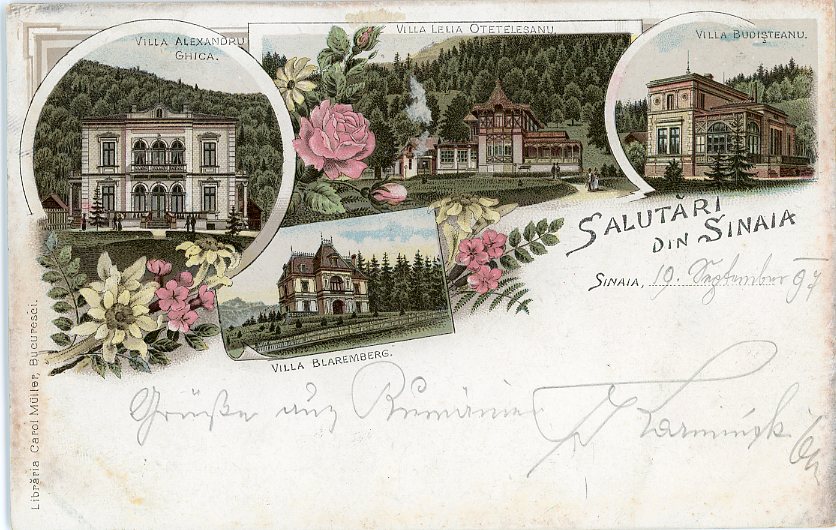 VILLA ALEXANDRU
GHICA.
VILLA LELIA OTETELESANU.
VILLA BUDIȘTEANU.
SALUTĂRI
DIN SINAIA
SINAIA, 19. September 97
VILLA BLAREMBERG.
Grüße aus Rumänien
Librăria Carol Müller, Bucuresci.